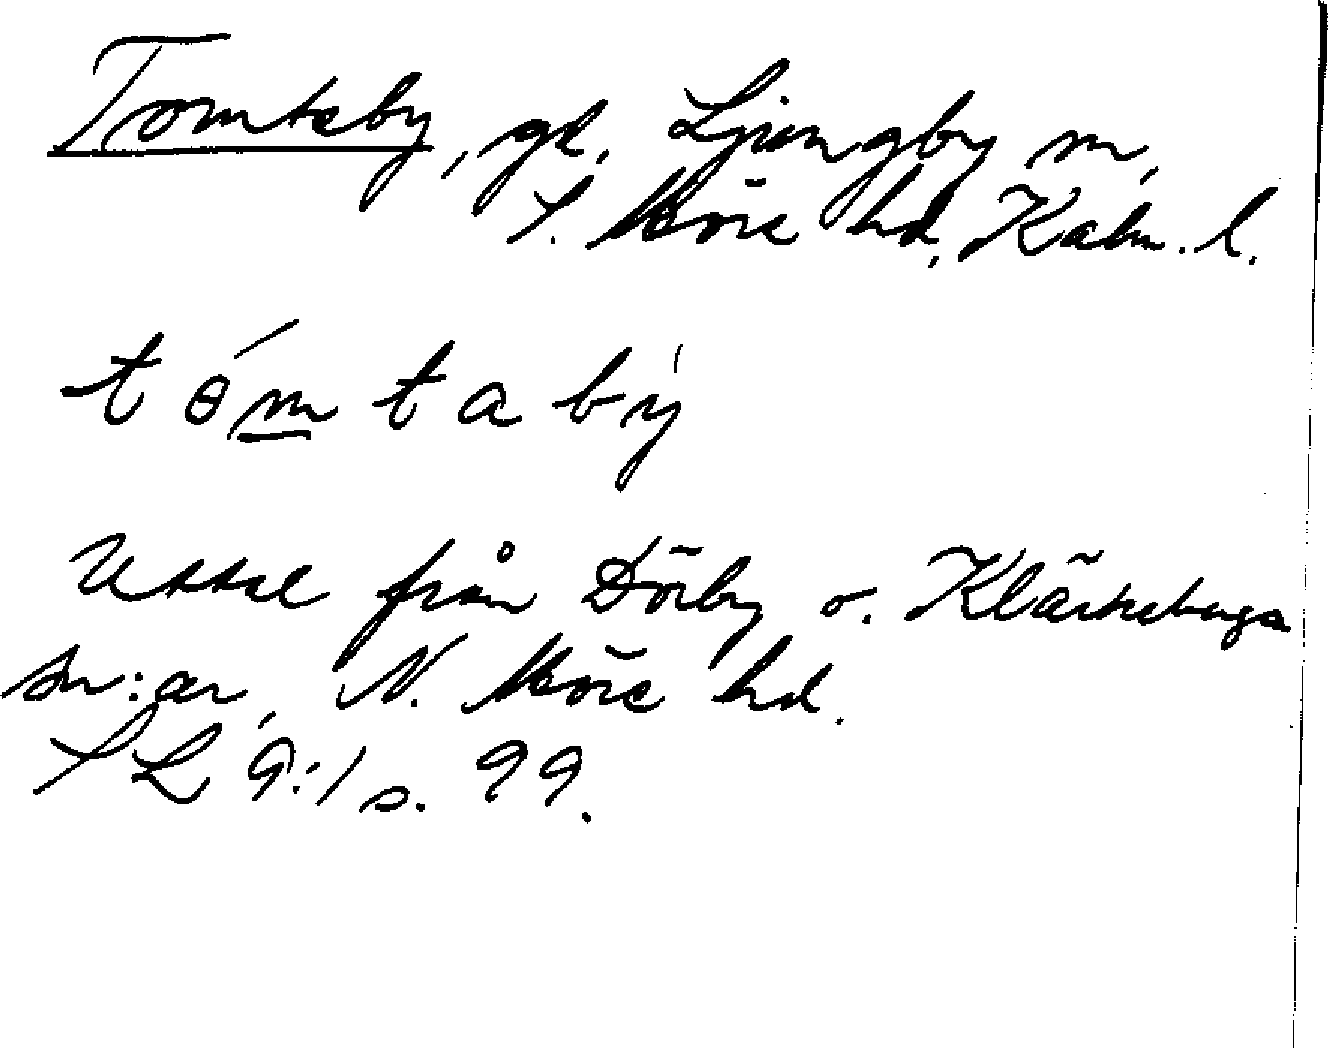 Tomteby, gd, Ljungby sn,
S. Möre hd, Kalm. l.
t ɵ́m t a bý
Uttal från Dörby o. Kläckeberga
sn:ar, N. Möre hd.
SL 9:1 s. 99.